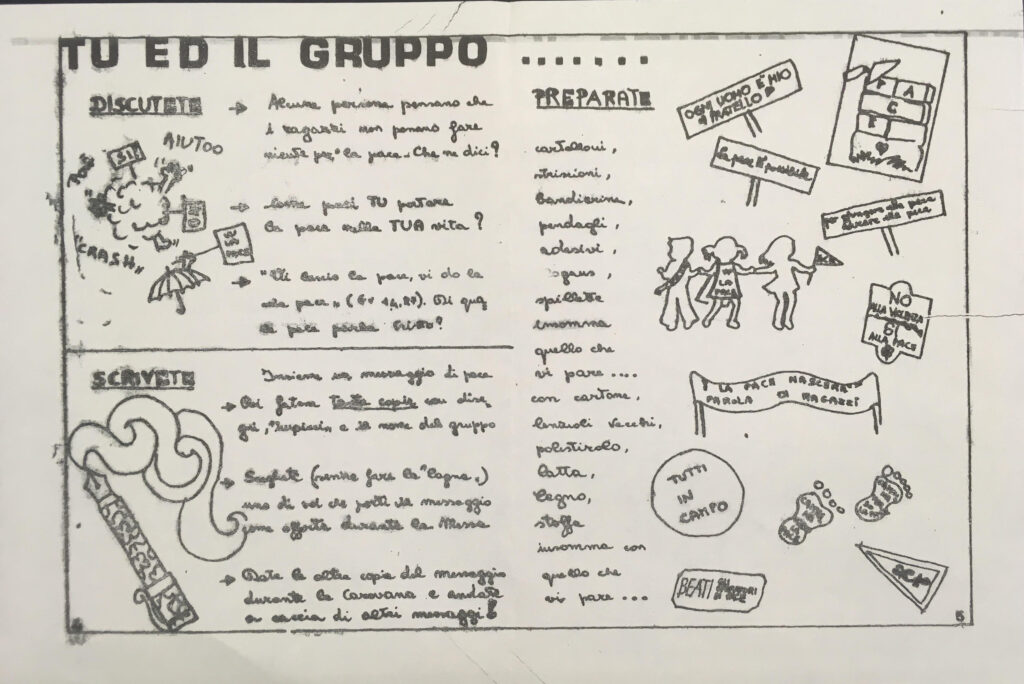 TU ED IL GRUPPO .......
DISCUTETE
Alcune persone pensano che
i ragazzi non possono fare
niente per "la pace". Che ne dici?
AIUTOO
SI!
"CRASH"
VIVA LA PACE
Come puoi TU portare
la pace nella TUA vita?
"Vi lascio la pace, vi do la
mia pace" (Gv 14,27). Di quale
pace parla Cristo?
SCRIVETE
Insieme un messaggio di pace
Poi fatene tante copie con dise-
gni, e il nome del gruppo
Scegliete (senza fare la "lagna")
uno di voi che porti il messaggio
come offerta durante la Messa
Date le altre copie del messaggio
durante la Carovana e andate
a caccia di altri messaggi!
4
PREPARATE
cartelloni,
striscioni,
bandierine,
pendagli,
adesivi,
slogans,
spillette
insomma
quello che
vi pare ....
con cartone,
lenzuoli vecchi,
polistirolo,
latta,
legno,
stoffa
insomma con
quello che
vi pare ...
OGNI UOMO E' MIO
FRATELLO
La pace è possibile
PACE
Per giungere alla pace
educare alla pace
W
LA
PACE
NO
ALLA VIOLENZA
SI
ALLA PACE
LA PACE NASCERA'
PAROLA DI RAGAZZI
TUTTI
IN
CAMPO
ACR
BEATI GLI OPERATORI DI PACE
5